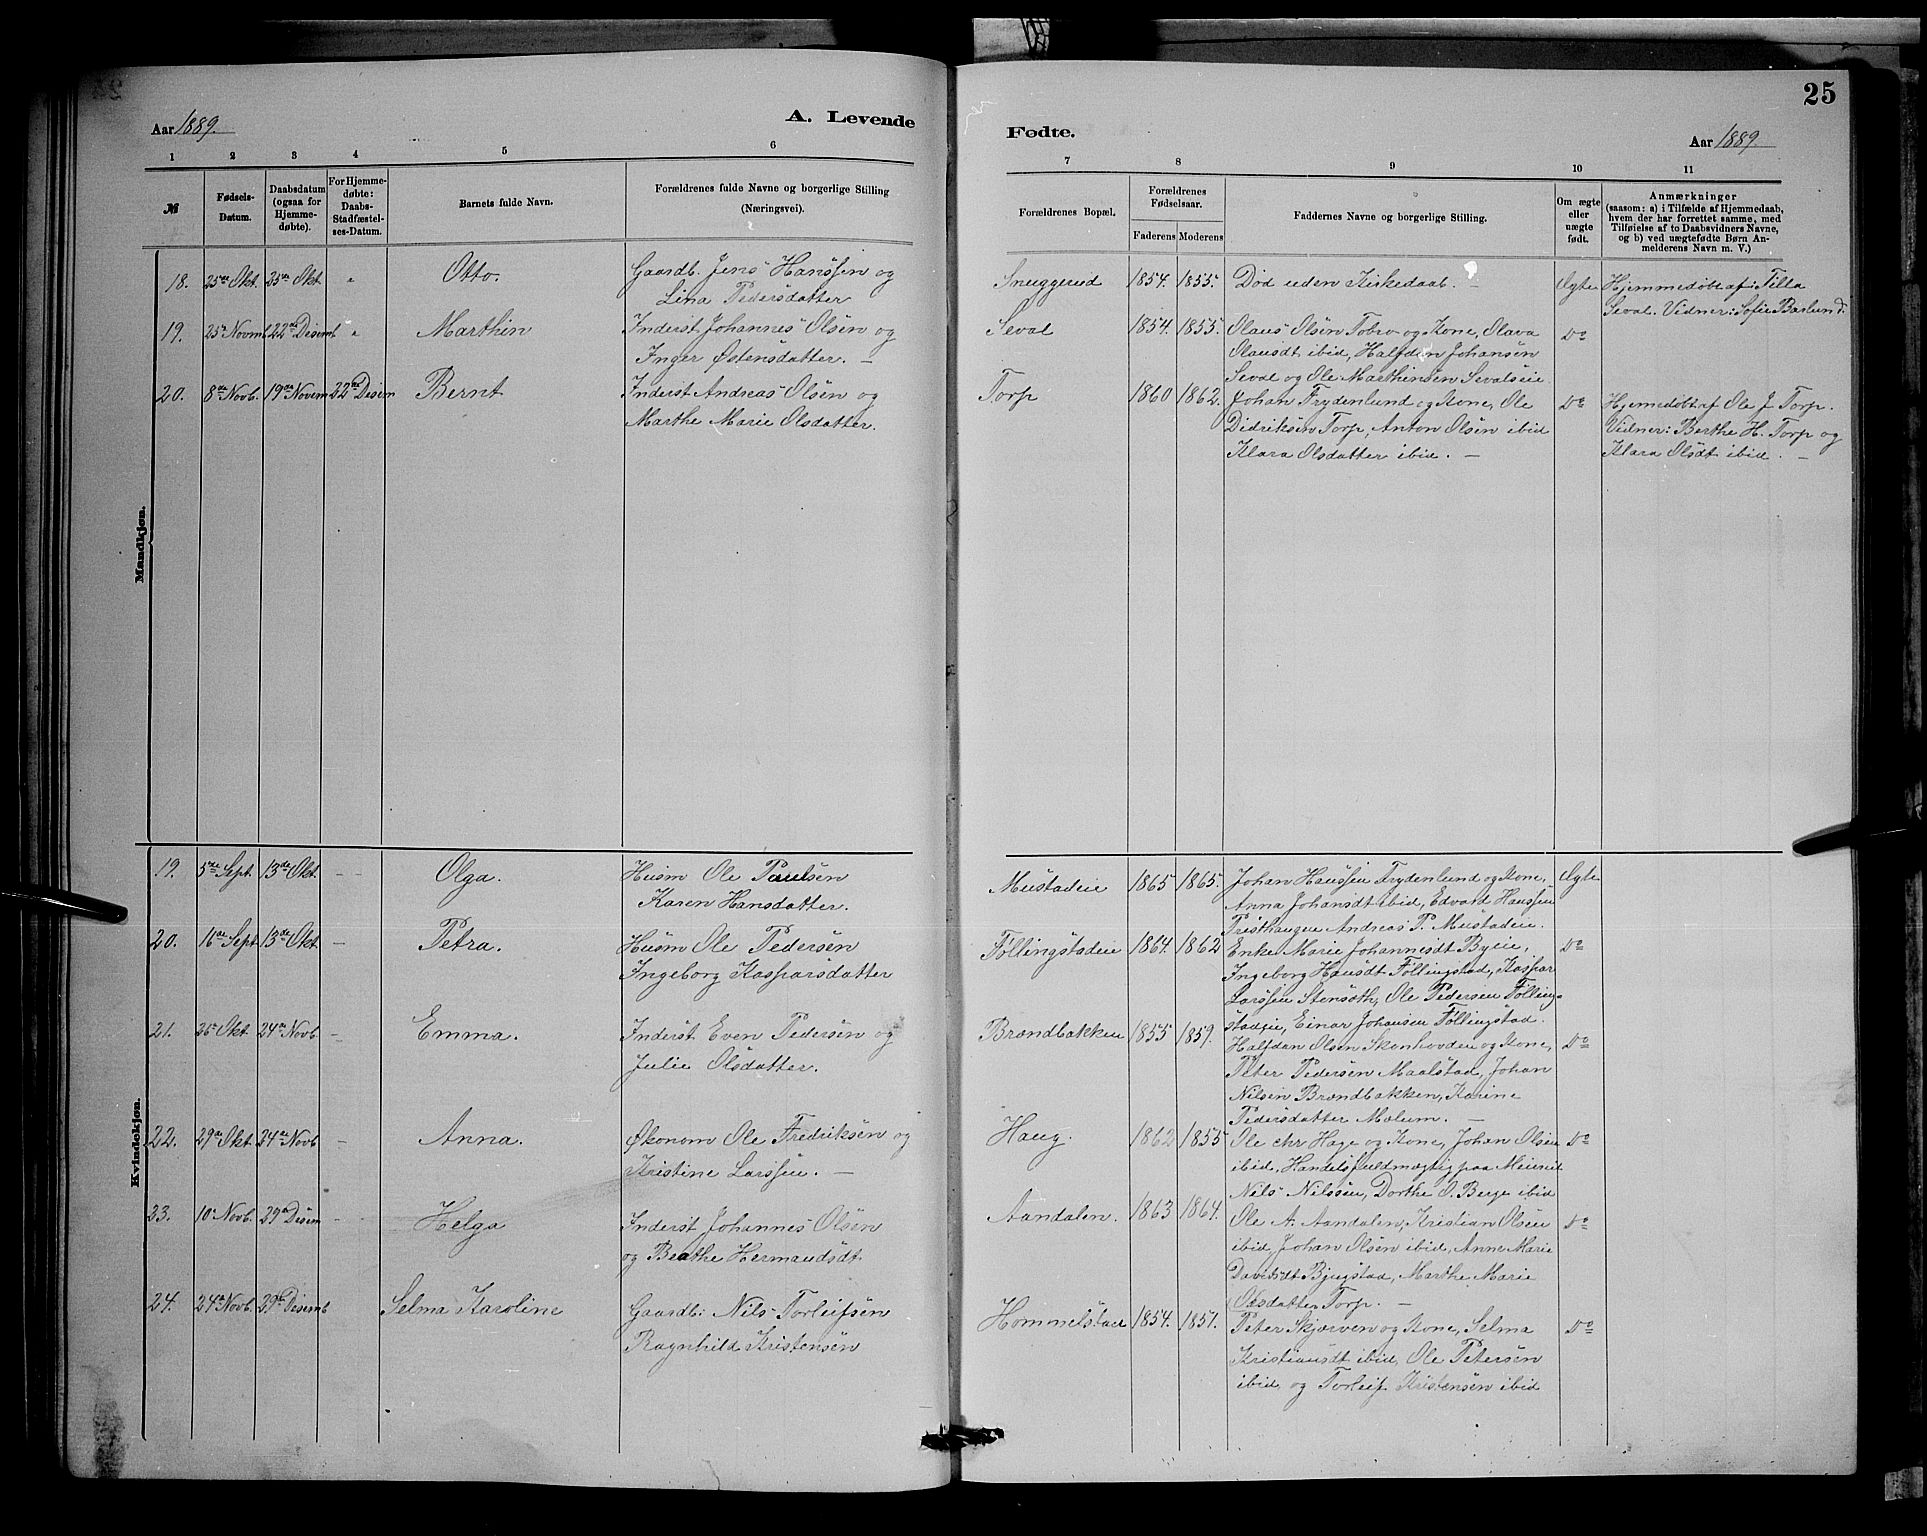 25
Aar 1889.
A. Levende
Fødte.
Aar 1889.
1 2 3 4 5 6
7 8 9 10 11
№
Fødsels-
Datum.
Daabsdatum
(ogsaa for
Hjemme-
døbte).
For Hjemme-
døbte:
Daabs-
Stadfæstel-
ses-Datum.
Barnets fulde Navn.
Forældrenes fulde Navne og borgerlige Stilling
(Næringsvei).
Forældrenes Bopæl.
Forældrenes
Fødselsaar.
Faderens Moderens
Faddernes Navne og borgerlige Stilling.
Om ægte
eller
uægte
født.
Anmærkninger
(saasom: a) i Tilfælde af Hjemmedaab,
hvem der har forrettet samme, med
Tilføielse af to Daabsvidners Navne,
og b) ved uægtefødte Børn An-
melderens Navn m. V.)
Mandkjøn.
18. 25de Okt. 25de Okt. " Otto.
Gaardb. Jens Hanssen og
Lina Pedersdatter
Snuggerud 1854. 1855. Død uden Kirkedaab. —
Ægte
Hjemmedøbt af: Tilla
Seval. Vidner: Sofie Baslund.
19. 25de Novmb 22de Desemb " Marthin
Inderst Johannes Olsen og
Inger Østensdatter. —
Seval 1854. 1855. Olaus Olsen Tobro og Kone, Olava
Olausdt ibid, Halfdan Johansen
Seval og Ole Marthinsen Sevalseie
Do
20. 8de Novb. 19de Novem 22de Desem Bernt
Inderst Andreas Olsen og
Marthe Marie Olsdatter.
Torp 1860 1862. Johan Frydenlund og Kone, Ole
Didriksen Torp, Anton Olsen ibid
Klara Olsdatter ibid. —
Do
Hjemmedøbt af Ole J. Torp.
Vidner: Berthe H. Torp og
Klara Olsdt ibid. —
Kvindekjøn.
19. 5te Sept. 13de Okt. — Olga.
Husm Ole Paulsen
Karen Hansdatter.
Mustadeie 1865 1865. Johan Hanssen Frydenlund og Kone,
Anna Johansdt ibid, Edvard Hanssen
Presthaugen Andreas P. Mustadeie.
Ægte
20. 16de Sept 13de Okt — Petra.
Husm Ole Pedersen
Ingeborg Kasparsdatter
Föllingstadeie 1864. 1862 Enke Marie Johannesdt Byeie,
Ingeborg Hansdt Föllingstad, Kaspar
Larssen Stensæth, Ole Pedersen Fölling-
stadeie, Einar Johansen Föllingstad.
Do
21. 25de Okt 24de Novb. — Emma.
Inderst Even Pedersen og
Julie Olsdatter.
Brændbakken 1855 1859. Halfdan Olsen Skonhovdeie og Kone,
Peter Pedersen Maalstad, Johan
Nilsen Brændbakken, Karine
Pedersdatter Mælum. —
Do
22. 29de Okt. 24de Novb — Anna.
Økonom Ole Fredriksen og
Kristine Larssen. —
Haug. 1862 1855 Ole Chr Hage og Kone, Johan Olsen
ibid, Handelsfuldmægtig paa Meieriet
Nils Nilssen, Dorthe O. Berge ibid
Do
23. 10de Novb. 29de Desem — Helga
Inderst Johannes Olsen
og Beathe Hermandsdt.
Aandalen. 1863 1864. Ole A. Aandalen, Kristian Olsen
ibid, Johan Olsen ibid, Anne Marie
Davidsdt Bjugstad, Marthe Marie
Olsdatter Torp. —
Do
24. 24de Novb. 29de Desemb Selma Karoline
Gaardb: Nils Torleifsen
Ragnhild Kristensen
Hommelstad 1854. 1857. Peter Skjærven og Kone, Selma
Kristiansdt ibid, Ole Petersen
ibid, og Torleif Kristensen ibid
Do